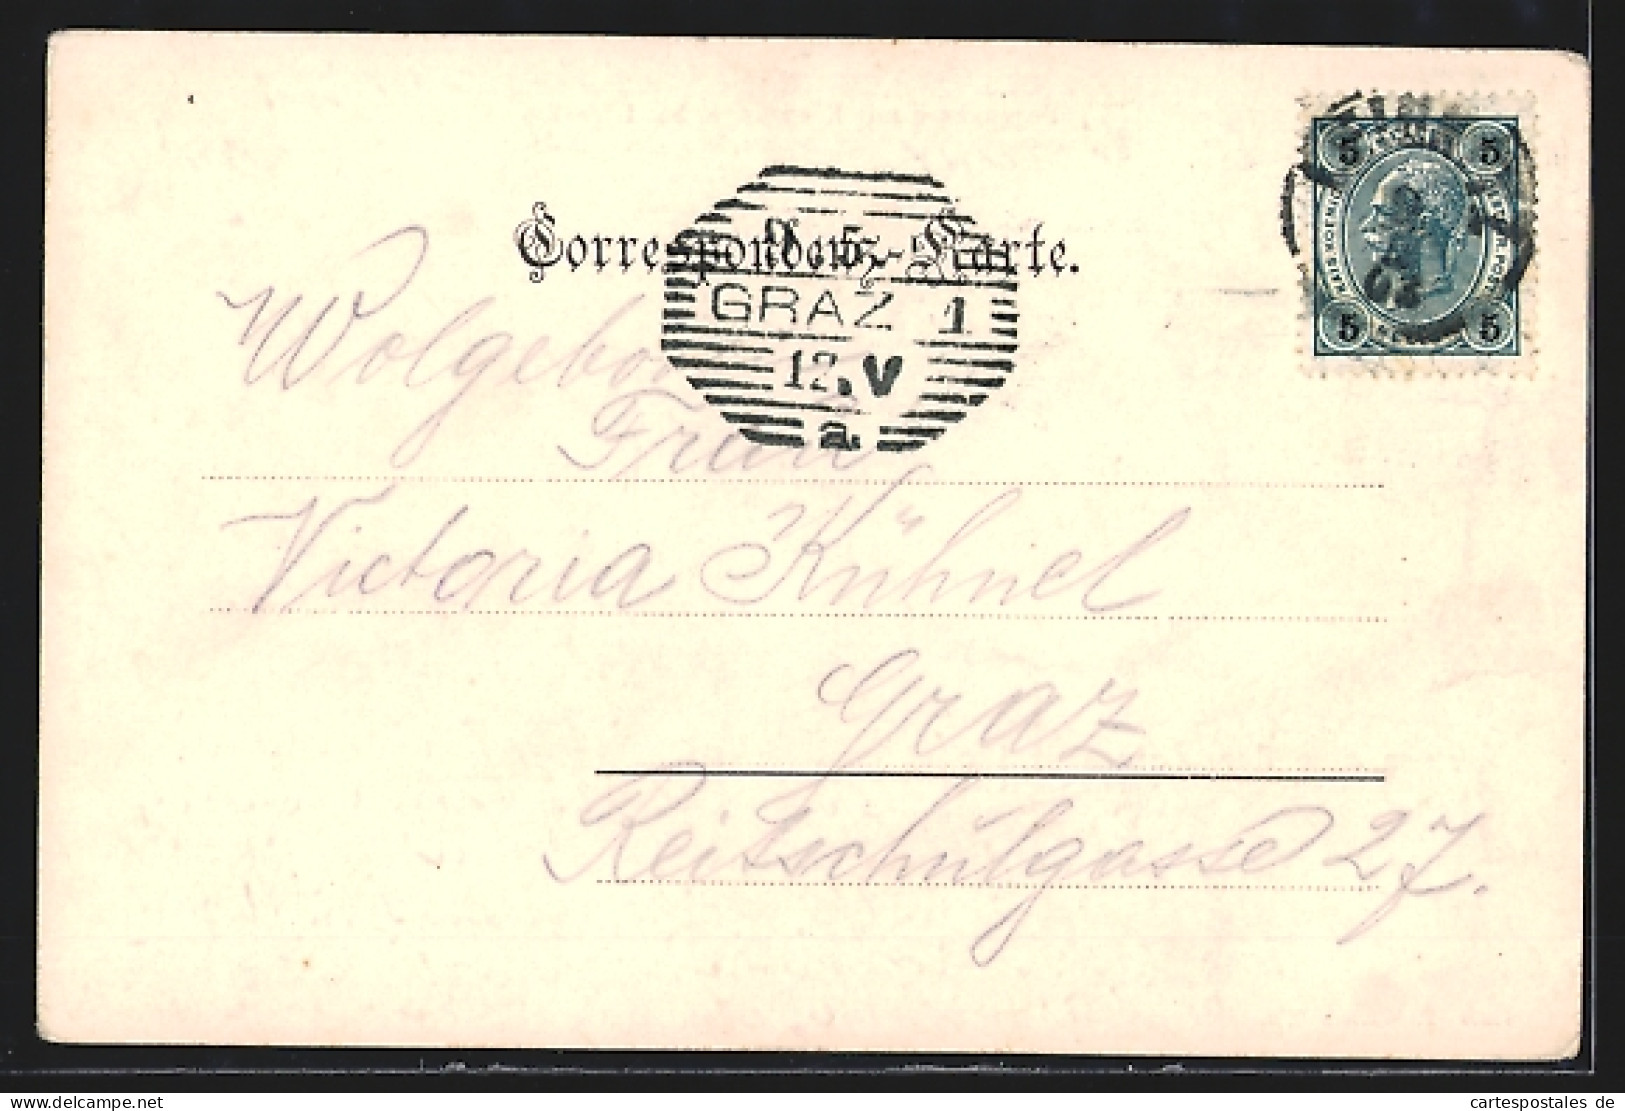 Correspondenz-Karte.
9.5.
GRAZ 1
12.V
a.
5 5
5 5
03
Wolgebor
Frau
Victoria Kühnel
Graz
Reitschulgasse 27.
cartespostales de